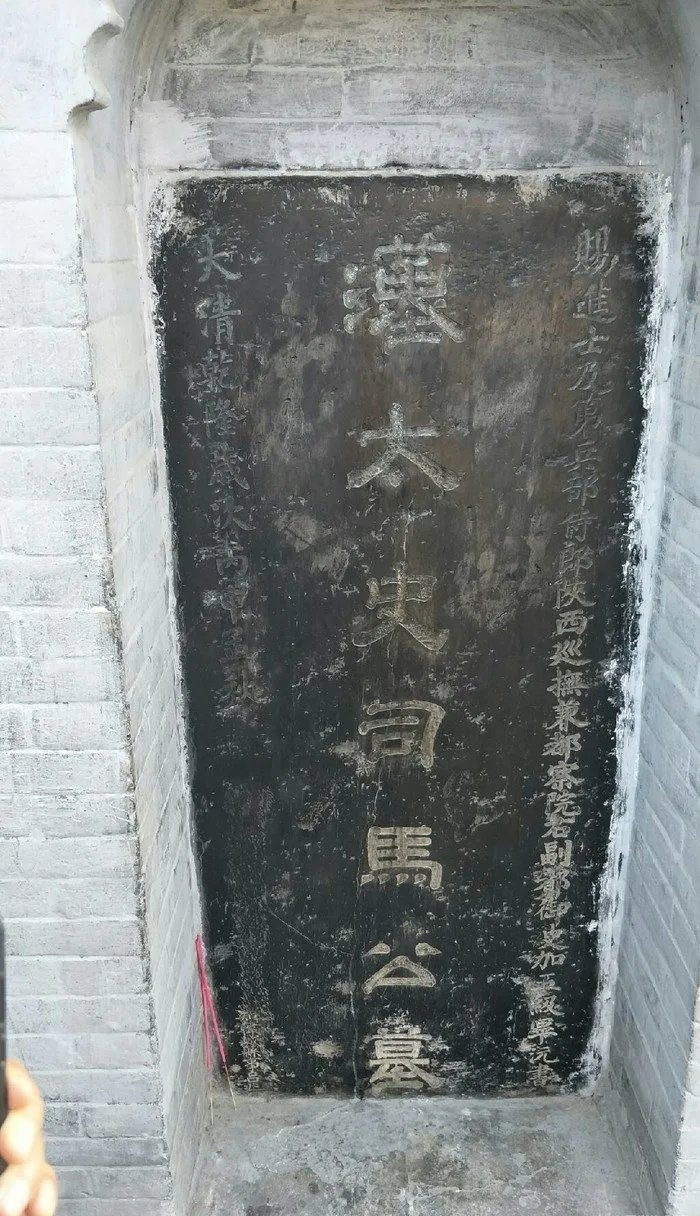 賜進士及第兵部侍郎陝西巡撫兼都察院右副都御史加五級畢沅書
漢太史司馬公墓
大清乾隆歲次丙申孟秋